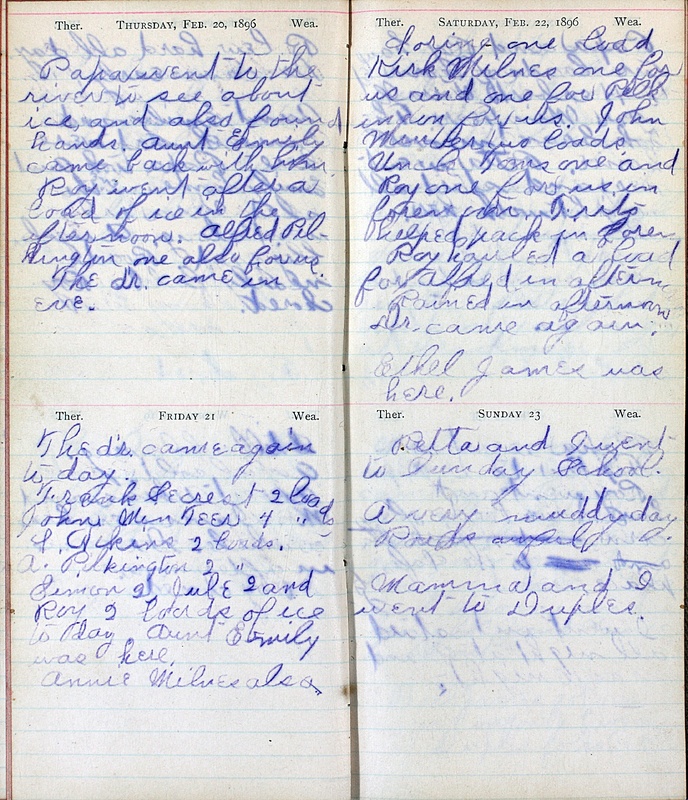 Ther. THURSDAY, FEB. 20, 1896 Wea.
Papa went to the
river to see about
ice, and also found
hands. Aunt Emily
came back with him.
Roy went after a
load of ice in the
afternoon. Alfred Pil-
kington one also for us.
The dr. came in
eve.
Ther. FRIDAY 21 Wea.
The dr. came again
to day.
Frank Secrest 2 loads
John Min Teer 4 " ds
F. Aikens 2 loads.
A. Pilkington 2 "
Simon 2 Jule 2 and
Roy 2 loads of ice
to day Aunt Emily
was here.
Annie Milnes also
Ther. SATURDAY, FEB. 22, 1896 Wea.
one load
Kirk Milnes one for
us and one for Pilk
inton for us. John
Minteer two loads.
Uncle Toms one and
Roy one for us in
forenoon.
helped pack in foren
Roy hauled a load
for Aloyd in aftern.
Rained in afternoon
Dr. came again.
Ethel James was
here.
Ther. SUNDAY 23 Wea.
Retta and I went
to Sunday School.
A very muddy day
Roads awful
Mamma and I
went to Duples.